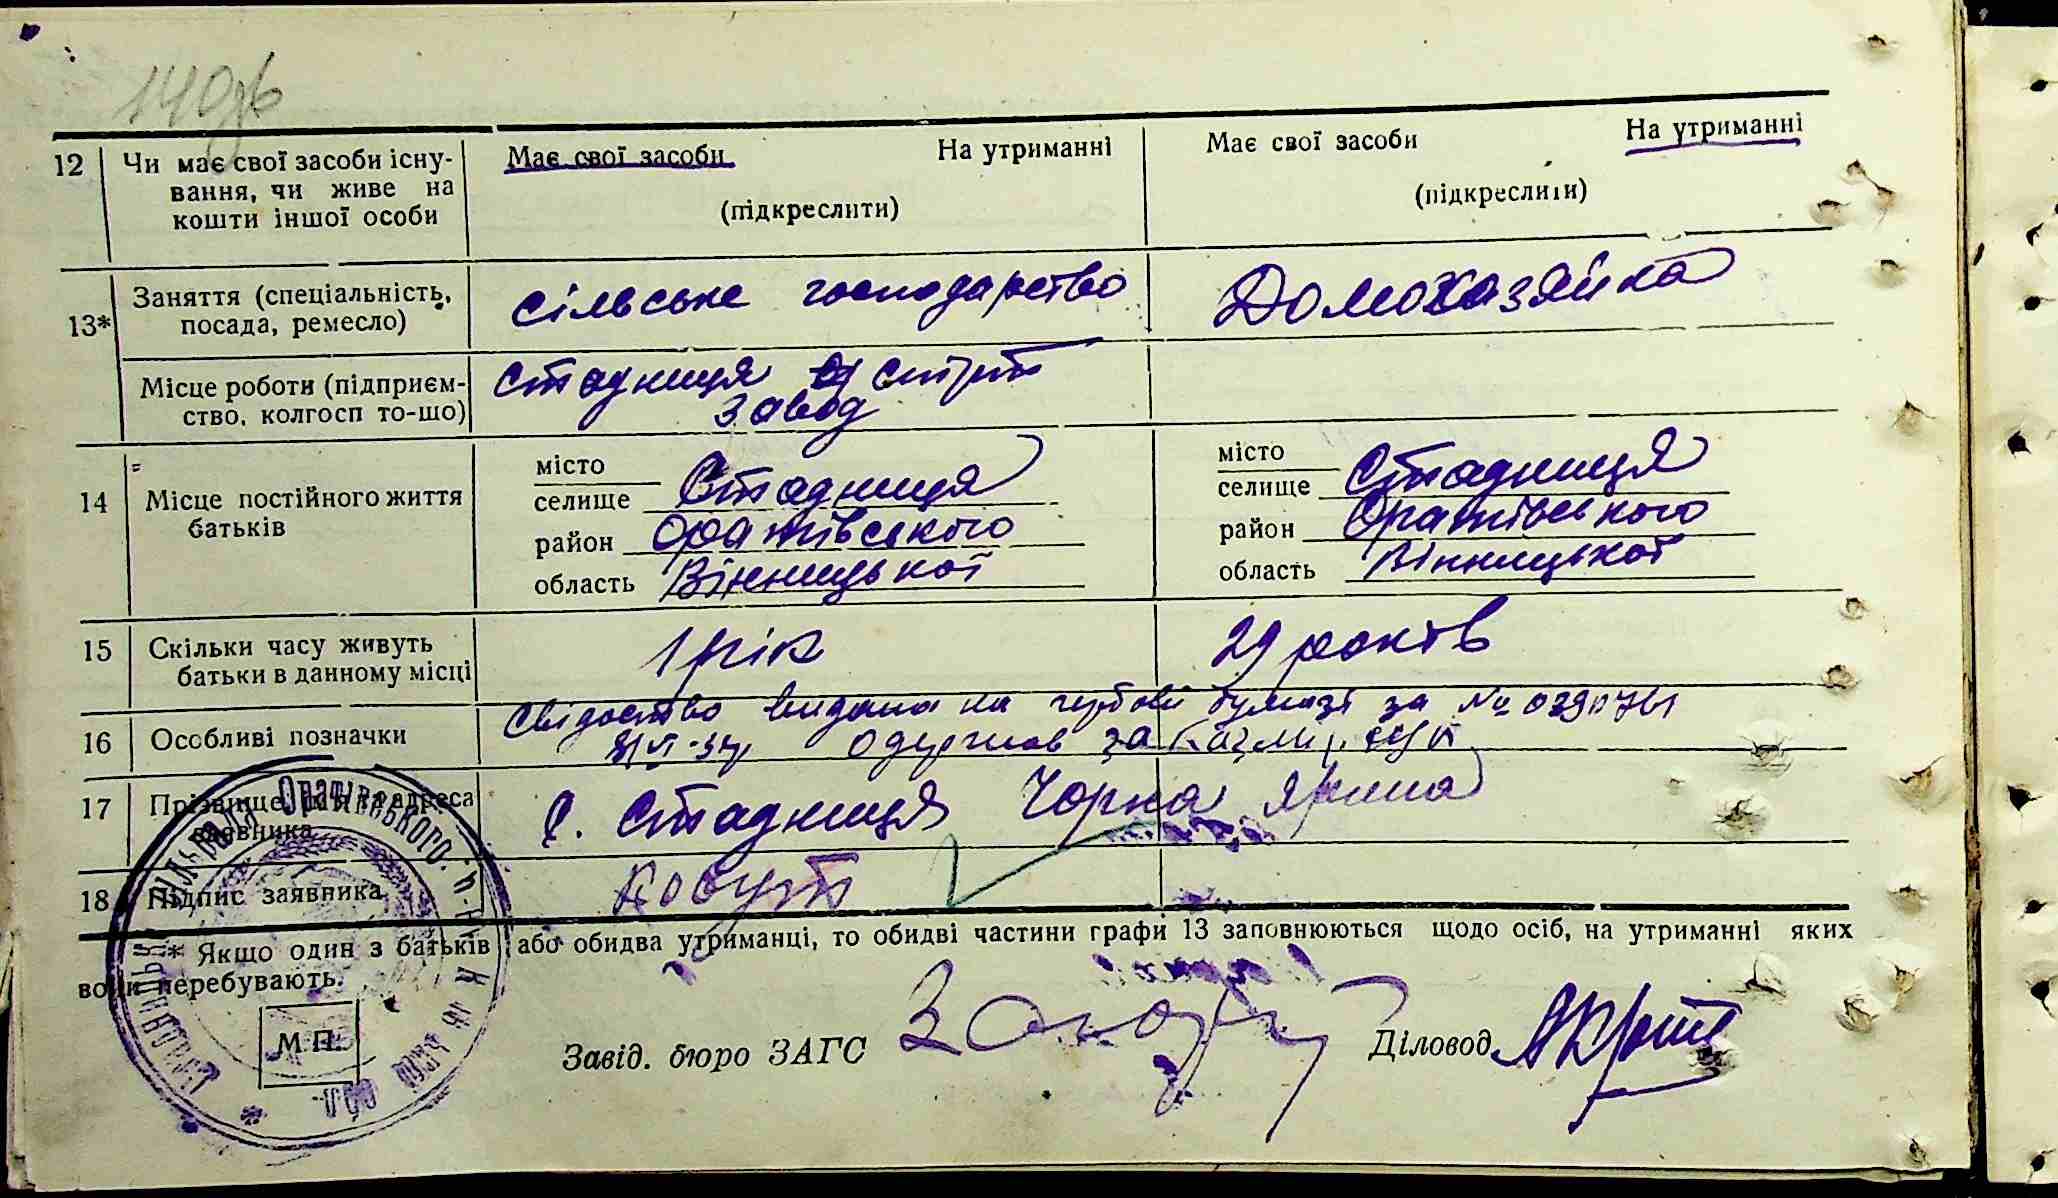 140зв
12 Чи має свої засоби існу- Має свої засоби На утриманні Має свої засоби На утриманні
вання, чи живе на
кошти іншої особи (підкреслити) (підкреслити)
13* Заняття (спеціальність, сільське господарство Домохазяйка
посада, ремесло)
Місце роботи (підприєм- Стадниця спірт
ство, колгосп то-що) завод
14 Місце постійного життя
батьків
місто
селище Стадниця
район Оратівського
область Вінницької
місто
селище Стадниця
район Оратівського
область Вінницької
15 Скільки часу живуть 1 рік 29 років
батьки в данному місці
16 Особливі позначки Свідоство видана на гербові бумазі за №
одержав за
17 Прізвище, ім'я та адреса с. Стадниця Чорна Ярина
заявника
18 Підпис заявника
* Якщо один з батьків або обидва утриманці, то обидві частини графи 13 заповнюються щодо осіб, на утриманні яких
вони перебувають.
М.П.
Завід. бюро ЗАГС Діловод
Оратівського р-ну Київської обл.